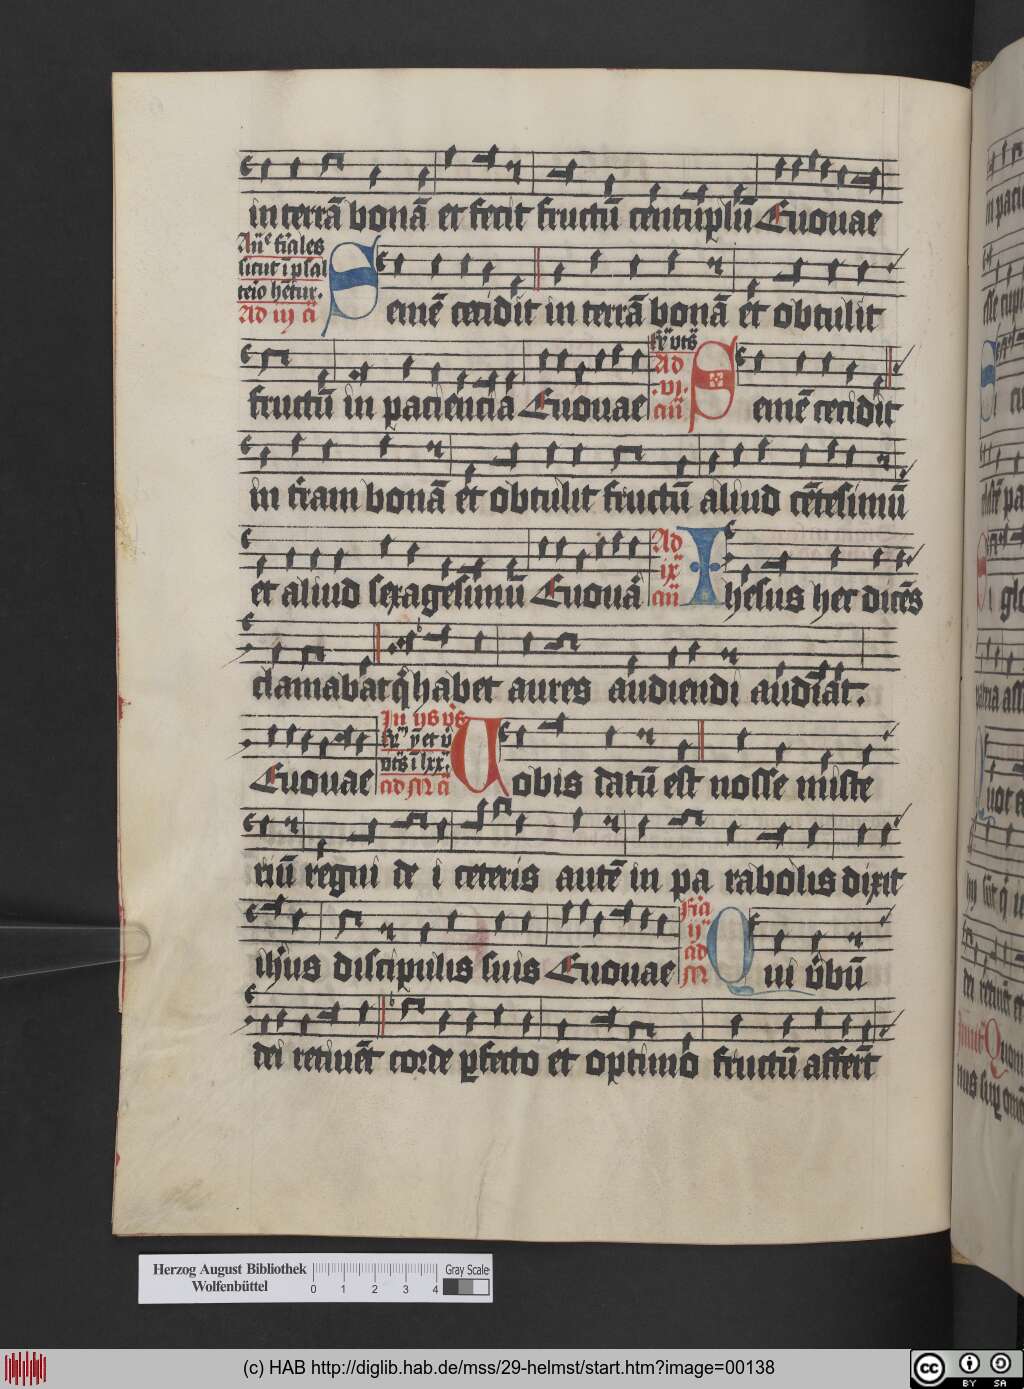 in terrā bonā et fecit fructū centuplū Euouae
Añe fiales
sicut ī psal
terio hētur.
Ad iij cā
Semē cecidit in terrā bonā et obtulit
fructū in paciencia Euouae
Ad
.vi.
Semē cecidit
in t̄ram bonā et obtulit fructū aliud cētesimū
et aliud sexagesimū Euoua
Ad
ix
Ihesus hec dicēs
clamabat q̄ habet aures audiendi audiat.
Euouae
In
ad
Uobis datū est nosse miste
riū regni dei ceteris autē in parabolis dixit
ih̄us discipulis suis Euouae
ad
Qui v̄bū
dei retinēt corde ꝑfecto et optimo fructū afferūt
Herzog August Bibliothek
Wolfenbüttel
0 1 2 3 4
Gray Scale
(c) HAB http://diglib.hab.de/mss/29-helmst/start.htm?image=00138
cc BY SA